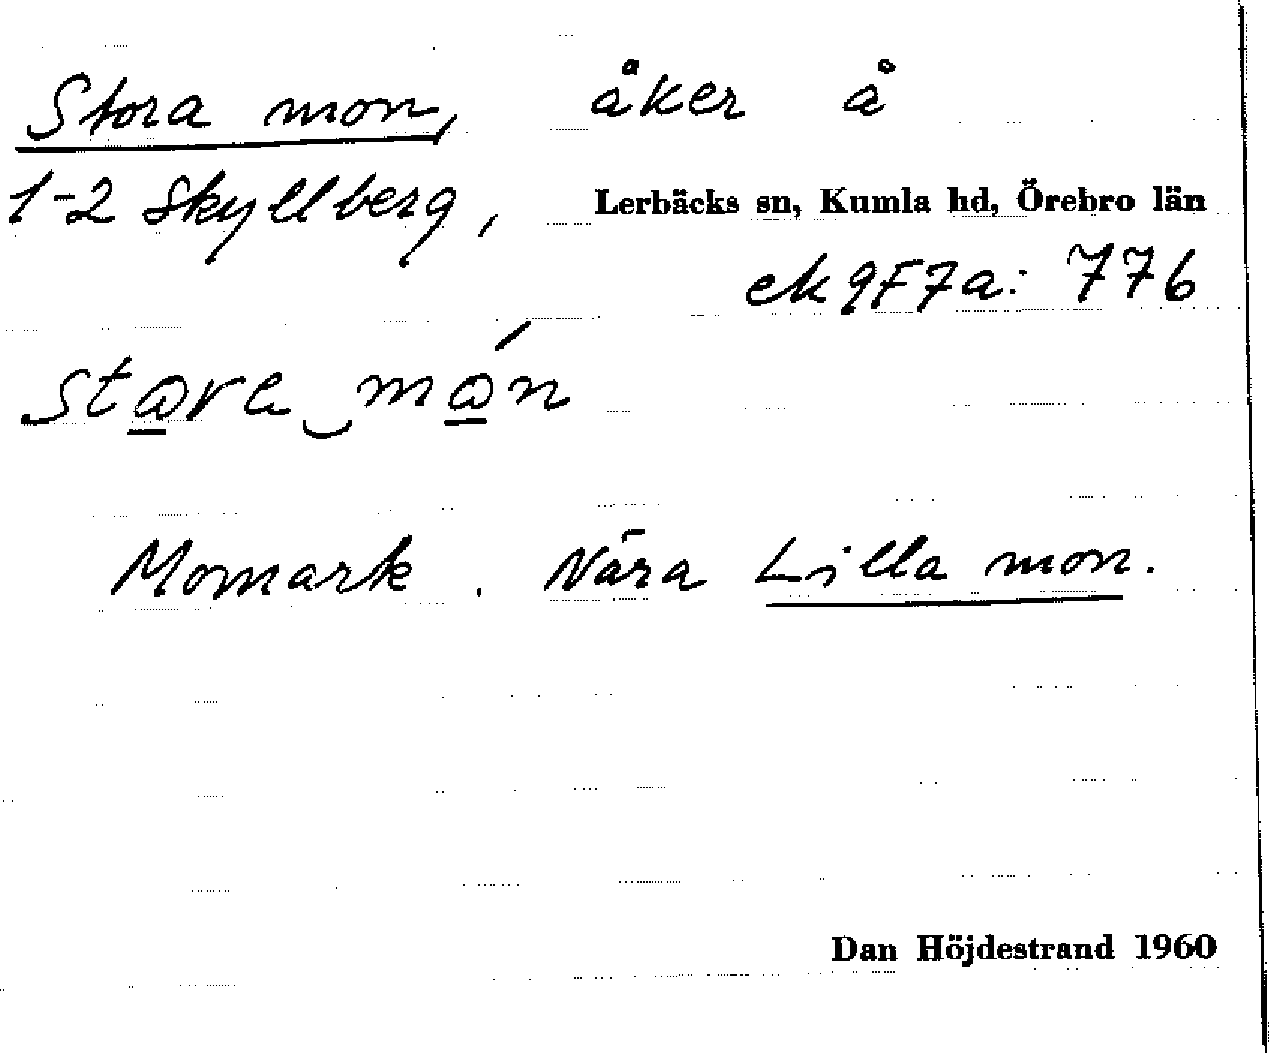 Stora mon, åker å
1-2 Skyllberg, Lerbäcks sn, Kumla hd, Örebro län
ek 9F7a: 776
Momark. Nära Lilla mon.
Dan Höjdestrand 1960